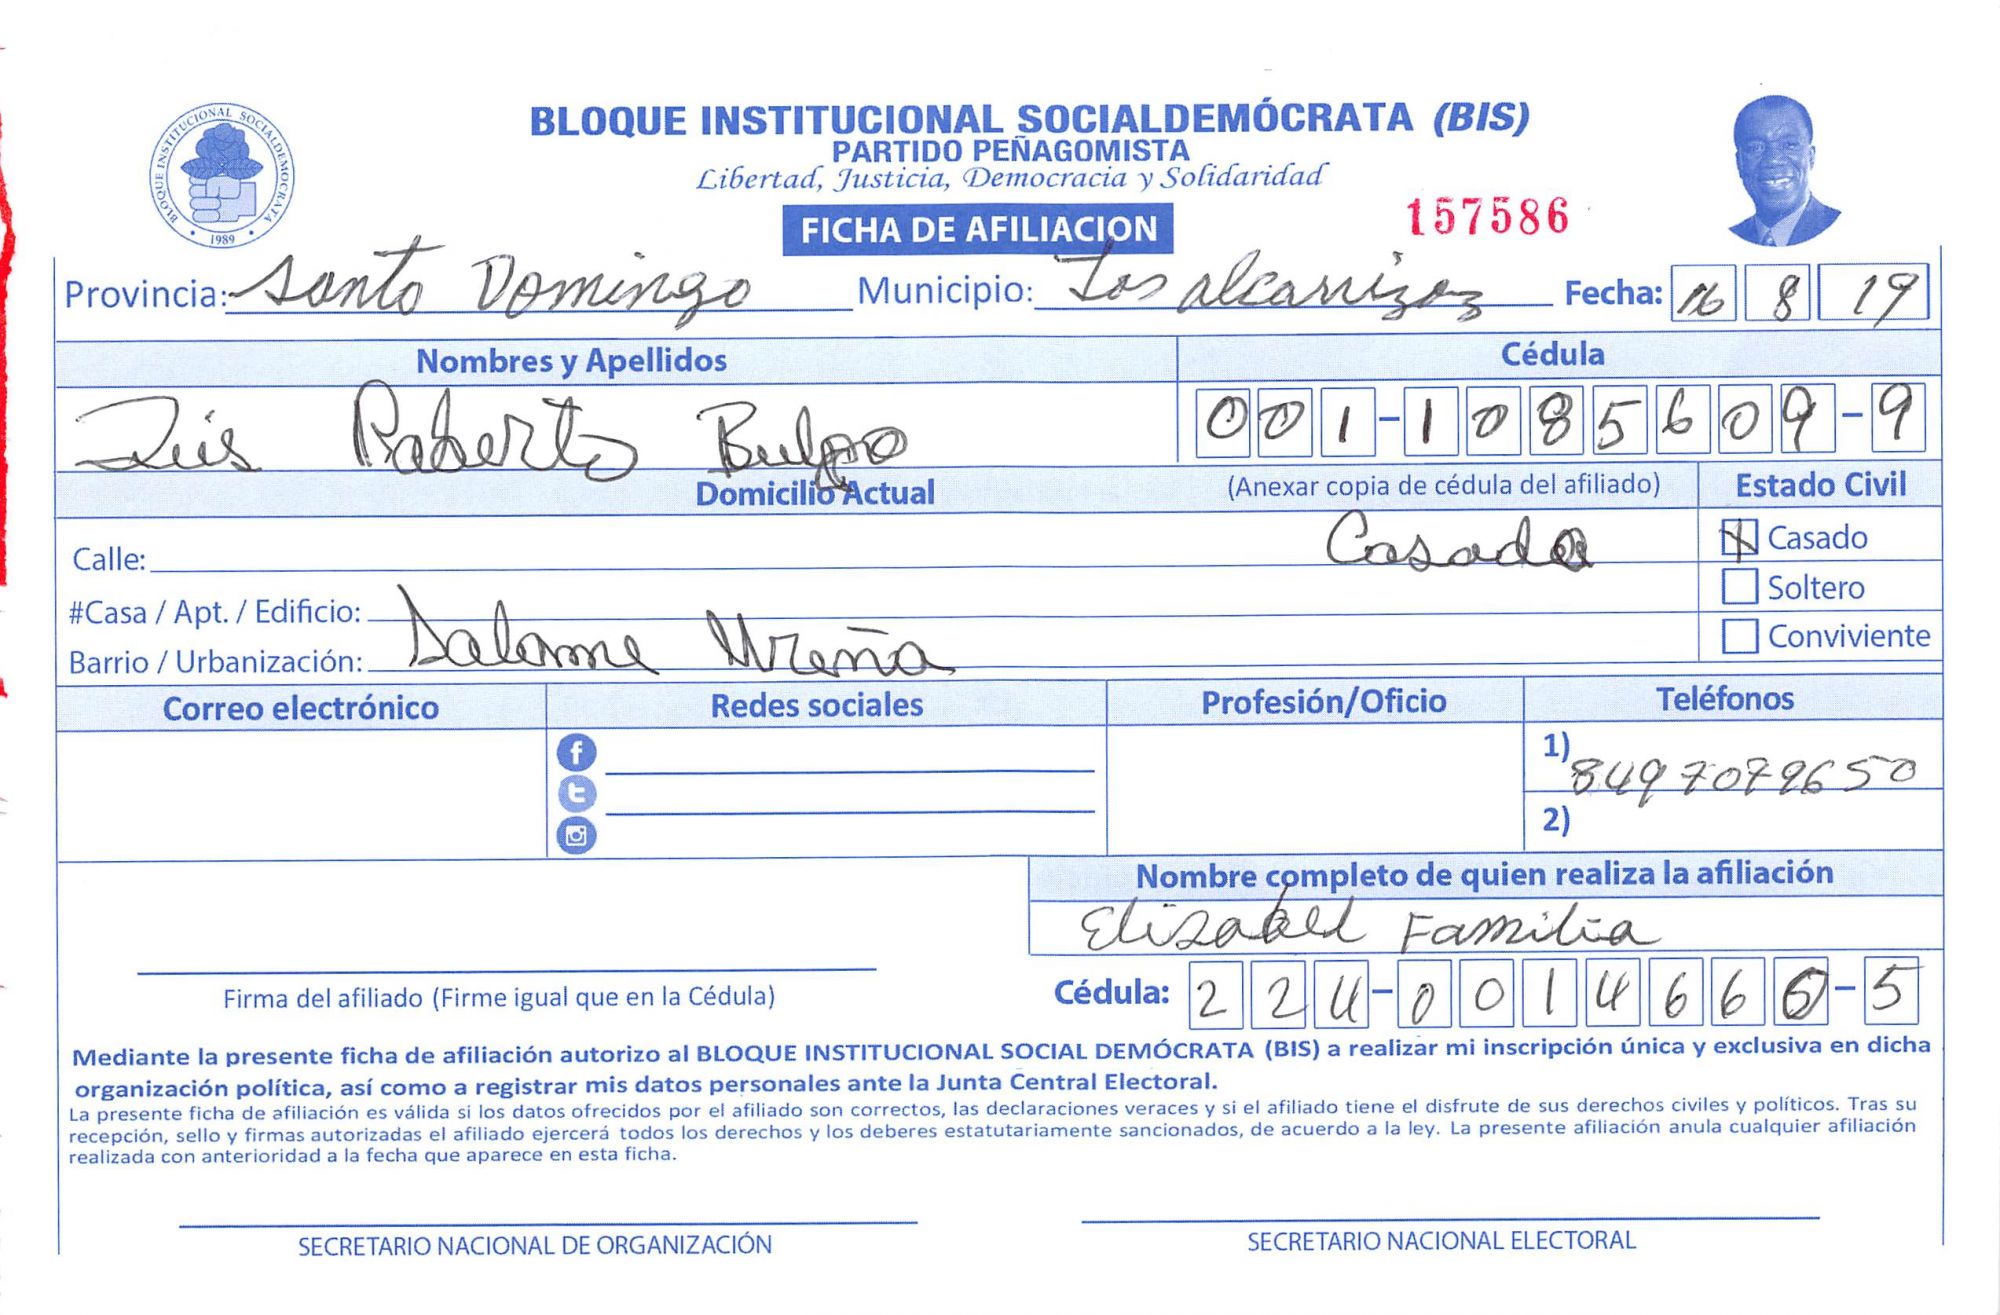 BLOQUE INSTITUCIONAL SOCIALDEMÓCRATA (BIS)
PARTIDO PEÑAGOMISTA
Libertad, Justicia, Democracia y Solidaridad
BLOQUE INSTITUCIONAL SOCIALDEMOCRATA
1989
FICHA DE AFILIACION
157586
Provincia: Santo Domingo Municipio: Los alcarrizos Fecha: 16 8 19
Nombres y Apellidos Cédula
Luis Roberto 001-1085609-9
Domicilio Actual (Anexar copia de cédula del afiliado) Estado Civil
Calle: Casado
Casado
#Casa / Apt. / Edificio:
Soltero
Barrio / Urbanización: Salome Ureña
Conviviente
Correo electrónico Redes sociales Profesión/Oficio Teléfonos
1) 8497079650
2)
Nombre completo de quien realiza la afiliación
Elizabel Familia
Firma del afiliado (Firme igual que en la Cédula) Cédula: 224-0014666-5
Mediante la presente ficha de afiliación autorizo al BLOQUE INSTITUCIONAL SOCIAL DEMÓCRATA (BIS) a realizar mi inscripción única y exclusiva en dicha
organización política, así como a registrar mis datos personales ante la Junta Central Electoral.
La presente ficha de afiliación es válida si los datos ofrecidos por el afiliado son correctos, las declaraciones veraces y si el afiliado tiene el disfrute de sus derechos civiles y políticos. Tras su
recepción, sello y firmas autorizadas el afiliado ejercerá todos los derechos y los deberes estatutariamente sancionados, de acuerdo a la ley. La presente afiliación anula cualquier afiliación
realizada con anterioridad a la fecha que aparece en esta ficha.
SECRETARIO NACIONAL DE ORGANIZACIÓN SECRETARIO NACIONAL ELECTORAL